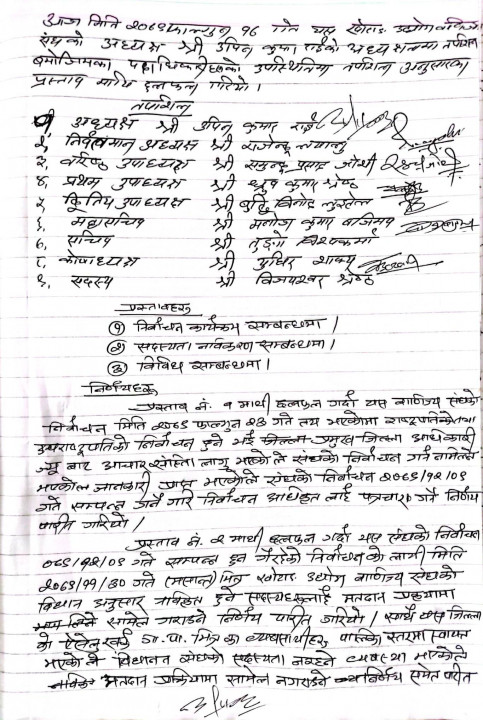 आज मिति २०७९ फाल्गुन १६ गते यस खोटाङ उद्योग वाणिज्य
संघको अध्यक्ष श्री उपिन कुमार राईको अध्यक्षतामा तपशिल
बमोजिमका पदाधिकारीहरुको उपस्थितिमा तपशिल अनुसारका
प्रस्ताव माथि छलफल गरियो ।
तपशिल
१. अध्यक्ष श्री उपिन कुमार राई
२. निवर्तमान अध्यक्ष श्री राजेन्द्र
३. वरिष्ठ उपाध्यक्ष श्री समुन्द्र प्रसाद जोशी
४. प्रथम उपाध्यक्ष श्री ध्रुव कुमार श्रेष्ठ
५. द्वितिय उपाध्यक्ष श्री बुद्धि विनोद
६. महासचिव श्री मनोज कुमार
७. सचिव श्री विश्वकर्मा
८. कोषाध्यक्ष श्री युधिर शाक्य
९. सदस्य श्री विजयश्वर श्रेष्ठ
प्रस्तावहरु
१) निर्वाचन कार्यक्रम सम्बन्धमा ।
२) सदस्यता नविकरण सम्बन्धमा ।
३) विविध सम्बन्धमा ।
निर्णयहरु
प्रस्ताव नं. १ माथी छलफल गर्दा यस वाणिज्य संघको
निर्वाचन मिति २०७९ फाल्गुन २७ गते तय भएकोमा राष्ट्रपति तथा
उपराष्ट्रपतिको निर्वाचन हुने भई जिल्ला प्रमुख जिल्ला अधिकारी
ज्यू बाट आचार संहिता लागु भएकोले संघको निर्वाचन गर्न नमिल्ने
भएकोले जानकारी प्राप्त भएकोले संघको निर्वाचन २०७९/१२/०९
गते सम्पन्न गर्ने गरि निर्वाचन अधिकृत लाई पत्राचार गर्ने निर्णय
पारीत गरियो ।
प्रस्ताव नं. २ माथी छलफल गर्दा यस संघको निर्वाचन
०७९/१२/०९ गते सम्पन्न हुन गैरहेको निर्वाचनको लागी मिति
२०७९/११/३० गते (मसान्त) भित्र खोटाङ उद्योग वाणिज्य संघको
विधान अनुसार नविकृत हुने सदस्यहरुलाई मतदान प्रकृयामा
सामेल गराउने निर्णय पारीत गरियो । साथै यस जिल्ला
का ऐसेलुखर्क गा.पा. भित्रका व्यवसायीहरु पालिका स्तरमा स्थापना
भएकोले विधानत संघको सदस्यता नरहने व्यवस्था भएकोले
मतदान प्रक्रियामा सामेल नगराउने निर्णय समेत पारीत